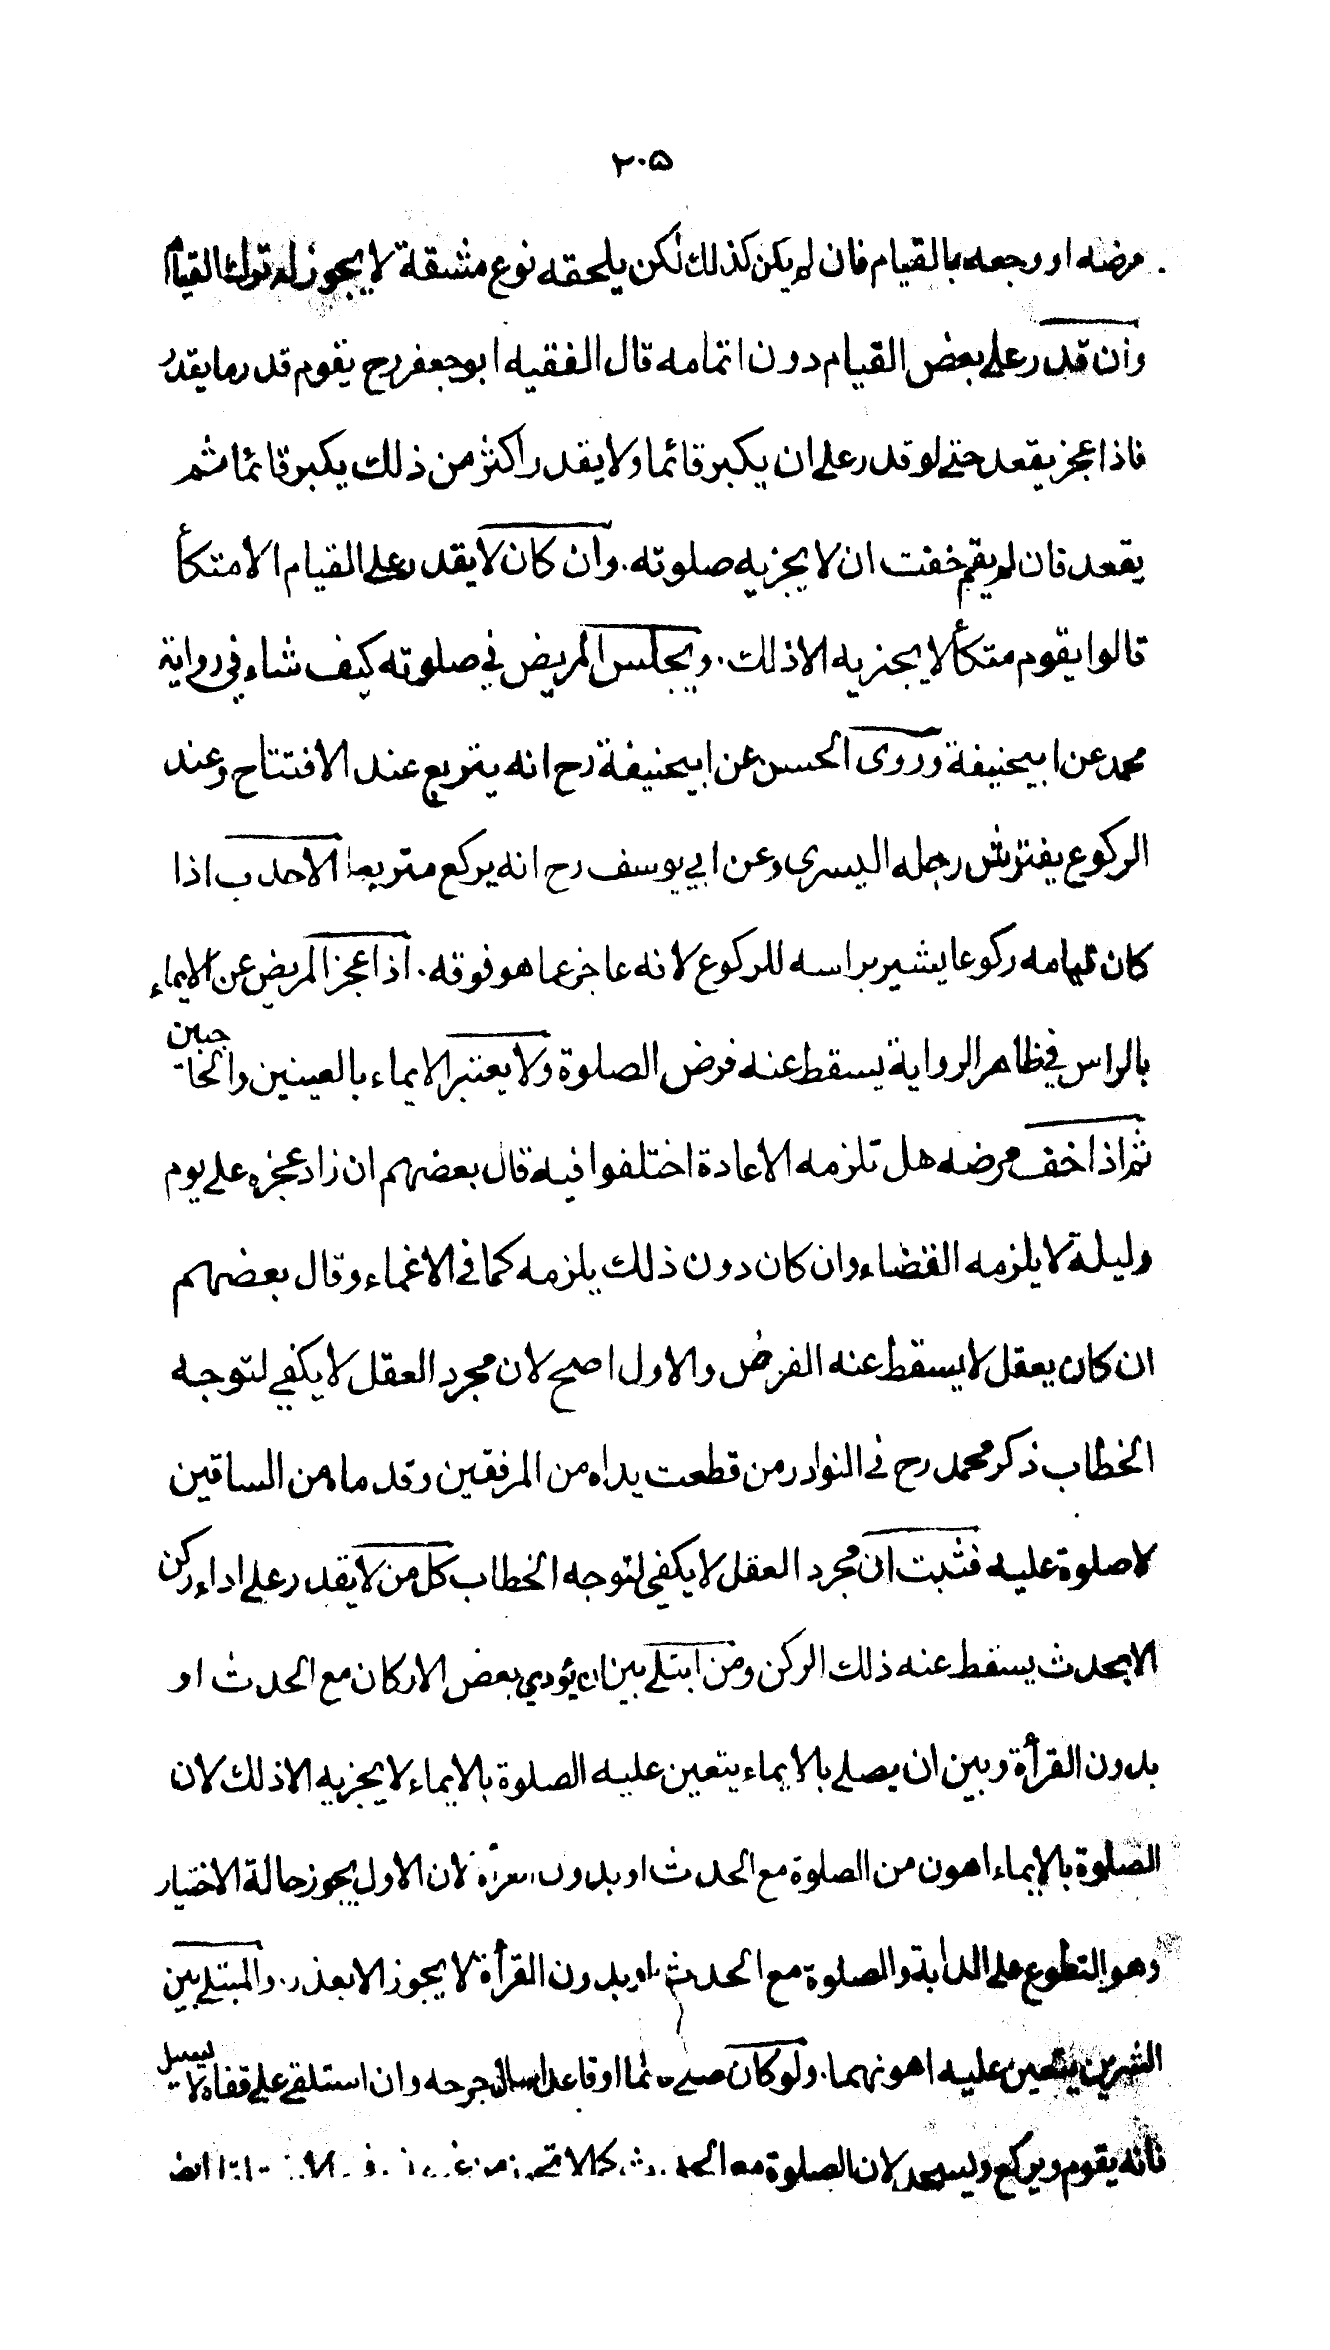 ۲۰۵
مرضه او وجعه بالقيام فان لم يكن كذلك لكن يلحقه نوع مشقة لا يجوز له ترك القيام
وان قدر على بعض القيام دون اتمامه قال الفقيه ابو جعفر رح يقوم قدر ما يقدر
فاذا عجز يقعد حتى لو قدر على ان يكبر قائما ولا يقدر اكثر من ذلك يكبر قائما ثم
يقعد فان لم يقم خفت ان لا يجزيه صلوته . وان كان لا يقدر على القيام الا متكأ
قالوا يقوم متكأ لا يجزيه الا ذلك . ويجلس المريض في صلوته كيف شاء في رواية
محمد عن ابيحنيفة وروى الحسن عن ابيحنيفة رح انه يتربع عند الافتتاح وعند
الركوع يفترش رجله اليسرى وعن ابي يوسف رح انه يركع متربعا الاحدب اذا
كان قيامه ركوعا يشير براسه للركوع لانه عاجز عما هو فوقه . اذا عجز المريض عن الايماء
بالراس في ظاهر الرواية يسقط عنه فرض الصلوة ولا يعتبر الايماء بالعينين والحاجبين
ثم اذا خف مرضه هل تلزمه الاعادة اختلفوا فيه قال بعضهم ان زاد عجزه على يوم
وليلة لا يلزمه القضاء وان كان دون ذلك يلزمه كما في الاغماء وقال بعضهم
ان كان يعقل لا يسقط عنه الفرض والاول اصح لان مجرد العقل لا يكفي لتوجه
الخطاب ذكر محمد رح في النوادر من قطعت يداه من المرفقين وقدماه من الساقين
لا صلوة عليه فثبت ان مجرد العقل لا يكفي لتوجه الخطاب كل من لا يقدر على اداء ركن
الا بحدث يسقط عنه ذلك الركن ومن ابتلي بين ان يؤدي بعض الاركان مع الحدث او
بدون القرأة وبين ان يصلي بالايماء يتعين عليه الصلوة بالايماء لا يجزيه الا ذلك لان
الصلوة بالايماء اهون من الصلوة مع الحدث او بدون القرأة لان الاول يجوز حالة الاختيار
وهو التطوع على الدابة والصلوة مع الحدث او بدون القرأة لا يجوز الا بعذر . والمبتلي بين
الشرين يتعين عليه اهونهما . ولو كان صلى قائما او قاعدا سال جرحه وان استلقي على قفاه لا يسيل
فانه يقوم ويركع ويسجد لان الصلوة مع الحدث كما لا تجوز من غير